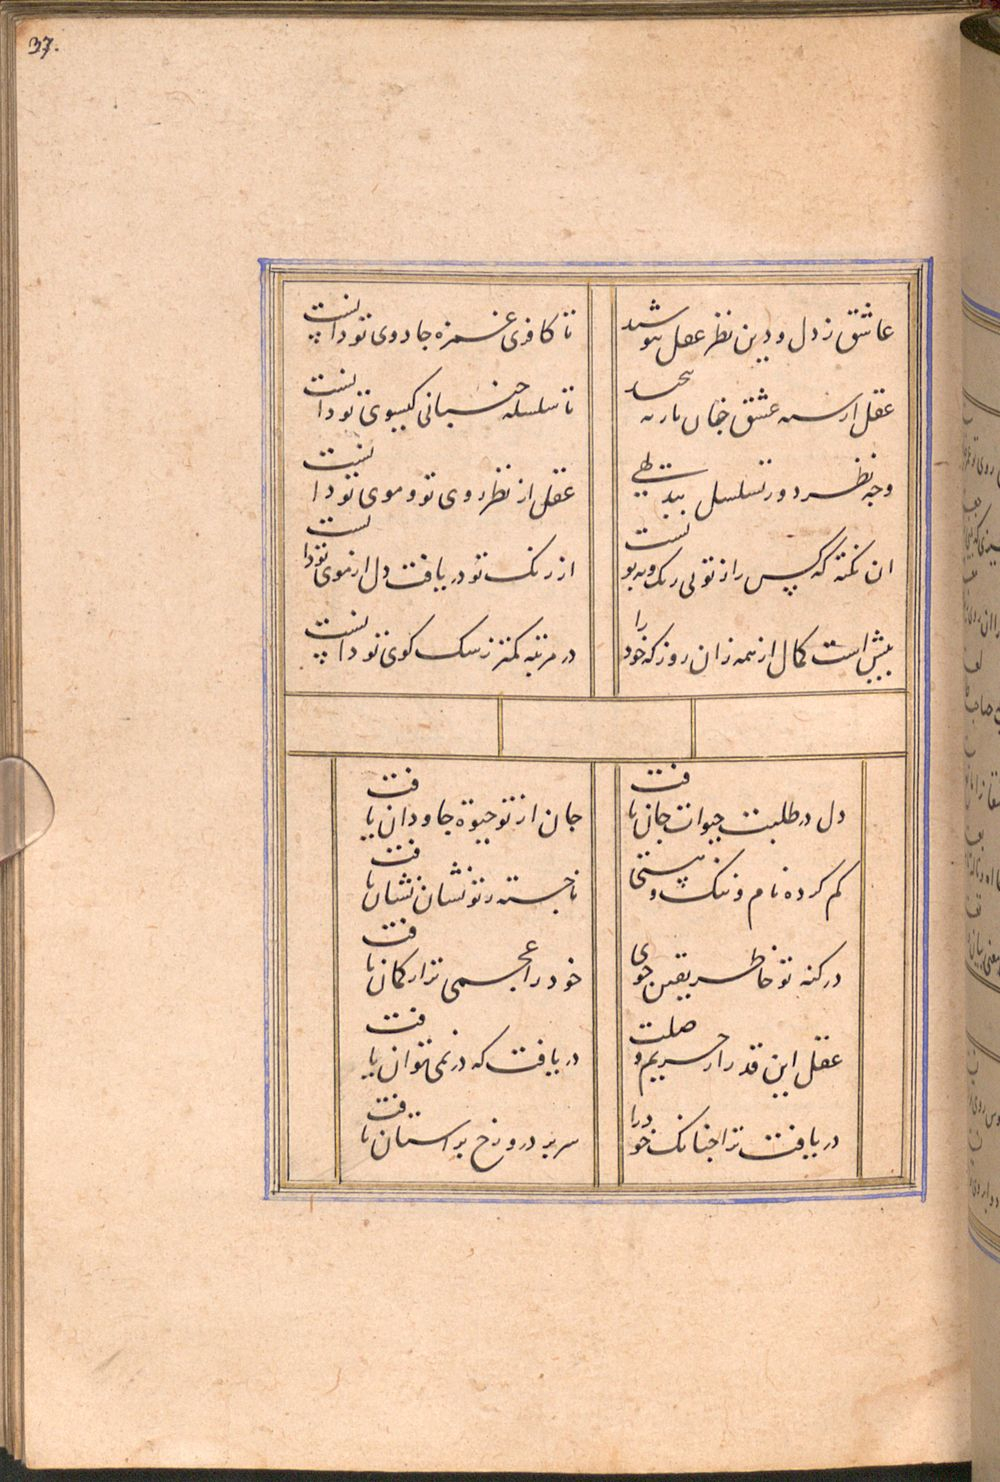 37.
عاشق ز دل و دین نظر عقل بپوشید
تا کافری غمزه جادوی تو دانست
عقل ار سر عشق خان بار به
تا سلسله جنبانی گیسوی تو دانست
وجه نظر دور تسلسل ببدیهی
عقل از نظر روی تو و موی تو دانست
ان نکته که کس را ز تو بی رنگ و بو نیست
از رنگ تو دریافت دل از موی تو دانست
بیش است کمال از همه زان روز که خود را
در مرتبه کمتر ز سگ کوی تو دانست
دل در طلبت حیوات جان یافت
جان از تو حیوة جاودان یافت
کم کرده نام و ننگ و هستی
ناجسته ز تو نشان نشان یافت
در کنه تو خاطر یقین جوی
خود را عجمی تر از کمان یافت
عقل این قدر از حریم وصلت
دریافت که در نمی توان یافت
دریافت ترا چنانک خود را
سر بر در و رخ بر استان یافت